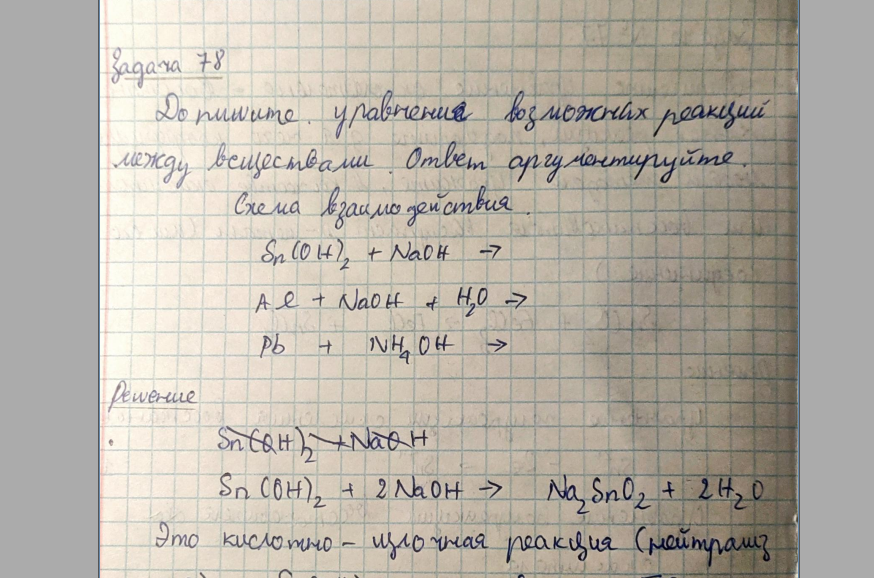 Задача 78
Допишите уравнения возможных реакций
между веществами. Ответ аргументируйте.
Схема взаимодействия.
Sn(OH)₂ + NaOH →
Al + NaOH + H₂O →
Pb + NH₄OH →
Решение
Sn(OH)₂ + NaOH
Sn(OH)₂ + 2NaOH → Na₂SnO₂ + 2H₂O
Это кислотно - щелочная реакция (нейтрализ